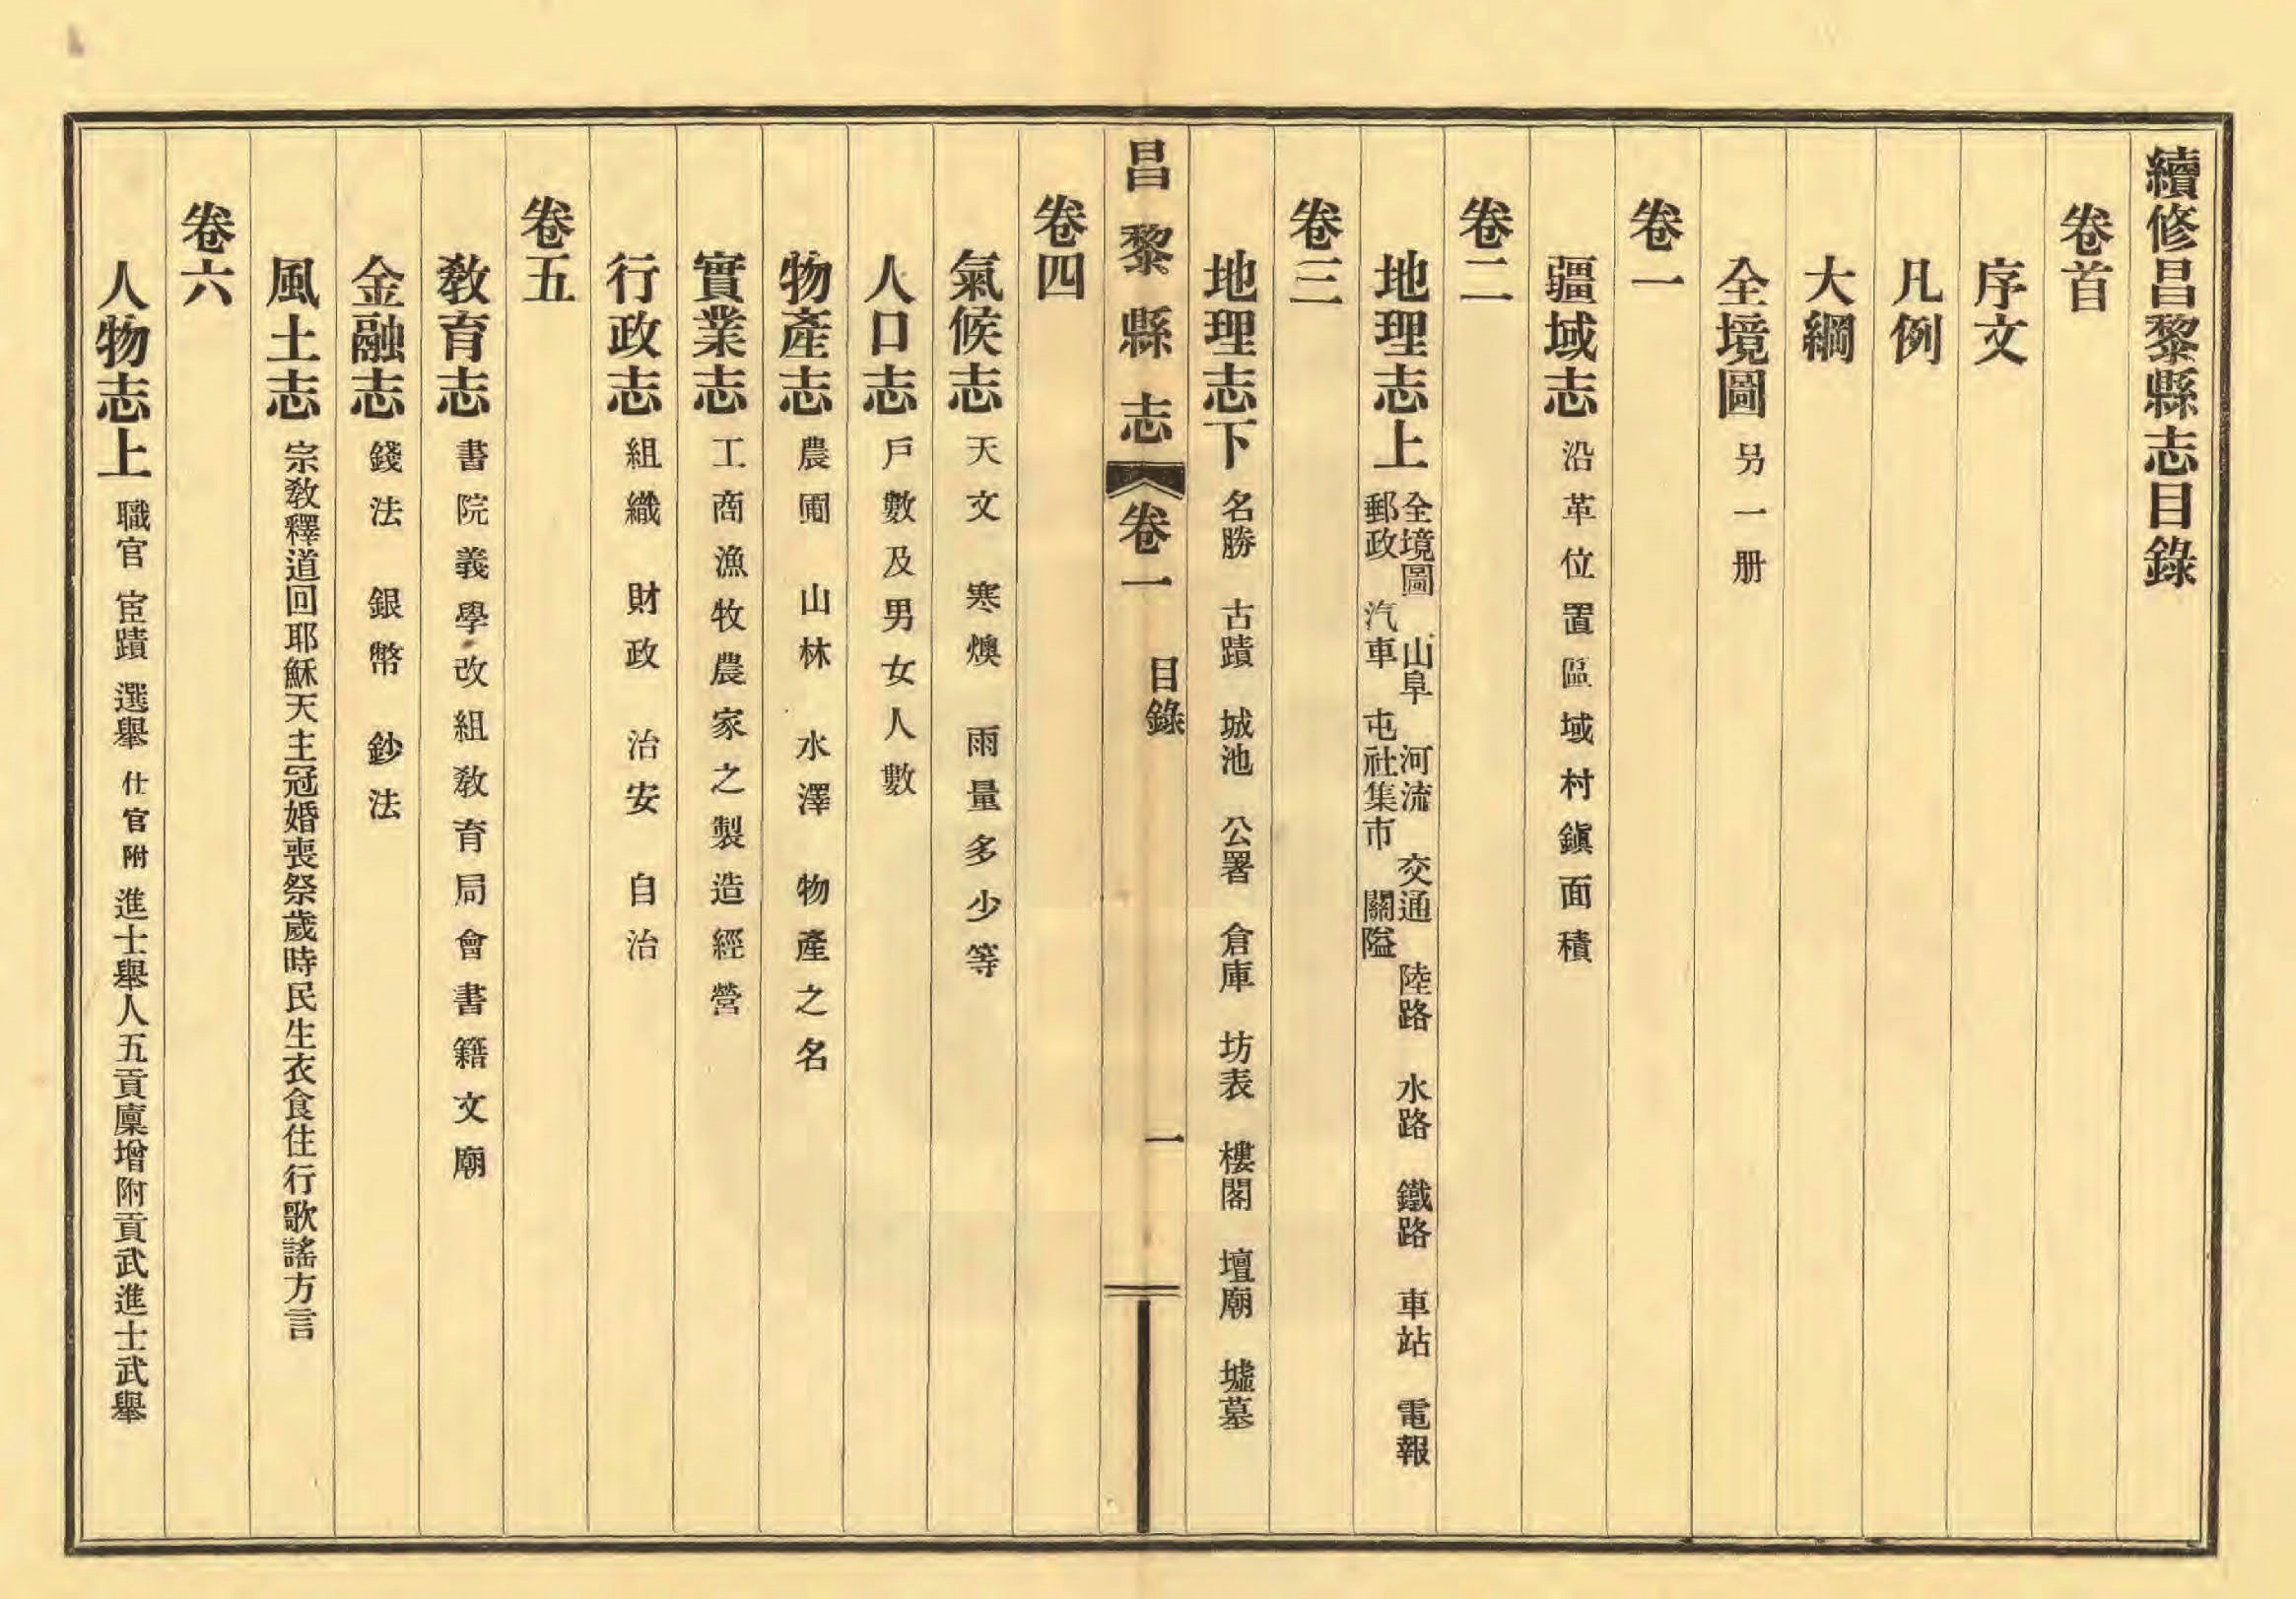 續修昌黎縣志目錄
卷首
序文
凡例
大綱
全境圖 另一册
卷一
疆域志 沿革位置區域村鎭面積
卷二
地理志上 全境圖 山阜 河流 交通 陸路 水路 鐵路 車站 電報
郵政 汽車 屯社集市 關隘
卷三
地理志下 名勝 古蹟 城池 公署 倉庫 坊表 樓閣 壇廟 墟墓
昌黎縣志 卷一 目錄 一
卷四
氣候志 天文 寒燠 雨量多少等
人口志 戶數及男女人數
物產志 農圃 山林 水澤 物產之名
實業志 工商漁牧農家之製造經營
行政志 組織 財政 治安 自治
卷五
敎育志 書院義學改組敎育局會書籍文廟
金融志 錢法 銀幣 鈔法
風土志 宗敎釋道回耶穌天主冠婚喪祭歲時民生衣食住行歌謠方言
卷六
人物志上 職官 宦蹟 選舉 仕官附 進士舉人五貢廩增附貢武進士武舉